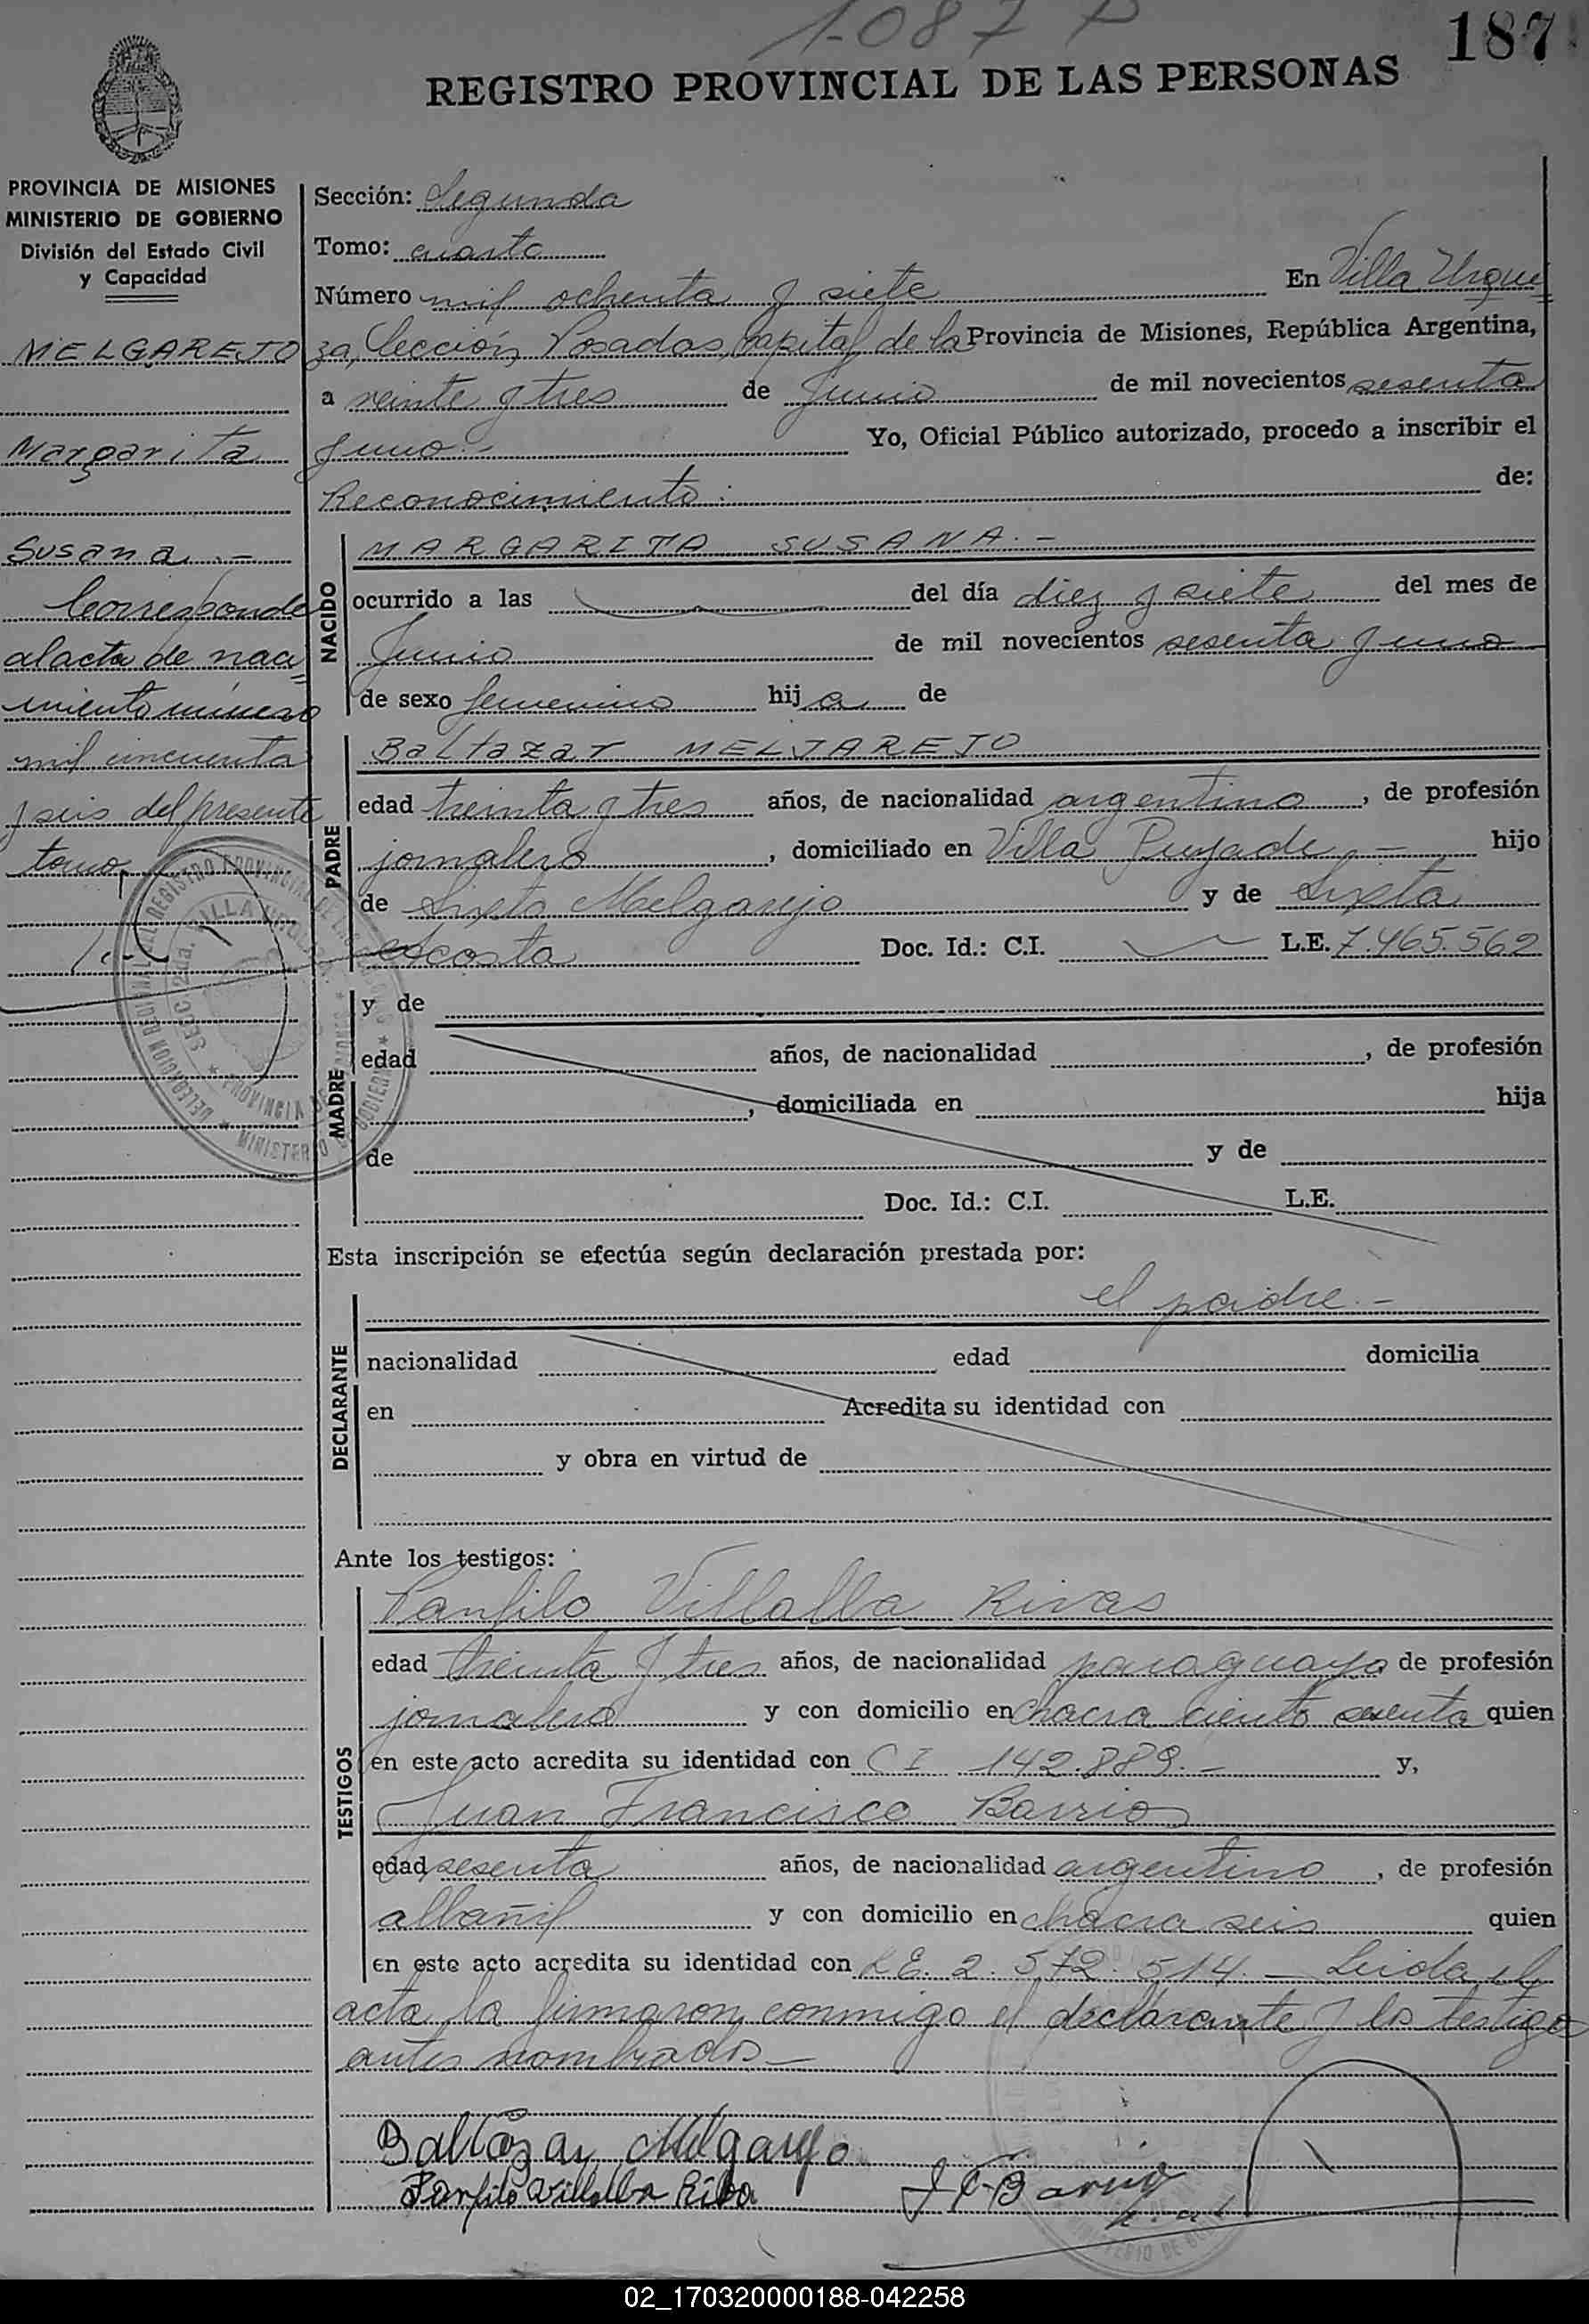 1087 P
187
REGISTRO PROVINCIAL DE LAS PERSONAS
PROVINCIA DE MISIONES
MINISTERIO DE GOBIERNO
División del Estado Civil
y Capacidad
MELGAREJO
Margarita
Susana.-
Corresponde
al acta de naci=
miento número
mil cincuenta
y seis del presente
tomo,
Sección: Segunda
Tomo: cuarto
Número mil ochenta y siete En Villa Urqui=
za, Sección, Posadas, Capital de la Provincia de Misiones, República Argentina,
a veinte y tres de Junio de mil novecientos sesenta
y uno.- Yo, Oficial Público autorizado, procedo a inscribir el
Reconocimiento: de:
NACIDO
MARGARITA SUSANA.-
ocurrido a las del día diez y siete del mes de
Junio de mil novecientos sesenta y uno
de sexo femenino hija de
PADRE
Baltazar MELJAREJO
edad treinta y tres años, de nacionalidad argentino, de profesión
jornalero, domiciliado en Villa Puyade,- hijo
de Sixto Melgarejo y de Sixta
Acosta Doc. Id.: C.I. L.E. 7.465.562
MADRE
y de
edad años, de nacionalidad , de profesión
, domiciliada en hija
de y de
Doc. Id.: C.I. L.E.
Esta inscripción se efectúa según declaración prestada por:
el padre.-
DECLARANTE
nacionalidad edad domicilia
en Acredita su identidad con
y obra en virtud de
Ante los testigos:
TESTIGOS
Panfilo Villalba Rivas
edad treinta y tres años, de nacionalidad paraguayo de profesión
jornalero y con domicilio en chacra ciento sesenta quien
en este acto acredita su identidad con CI 142.889.- y,
Juan Francisco Barrio
edad sesenta años, de nacionalidad argentino, de profesión
albañil y con domicilio en chacra seis quien
en este acto acredita su identidad con LE. 2.572.514.- Leida el
acta la firmaron conmigo el declarante y los testigos
antes nombrados-
Baltazar Melgarejo
Panfilo Villalba Riba
J F Barrio
02_170320000188-042258